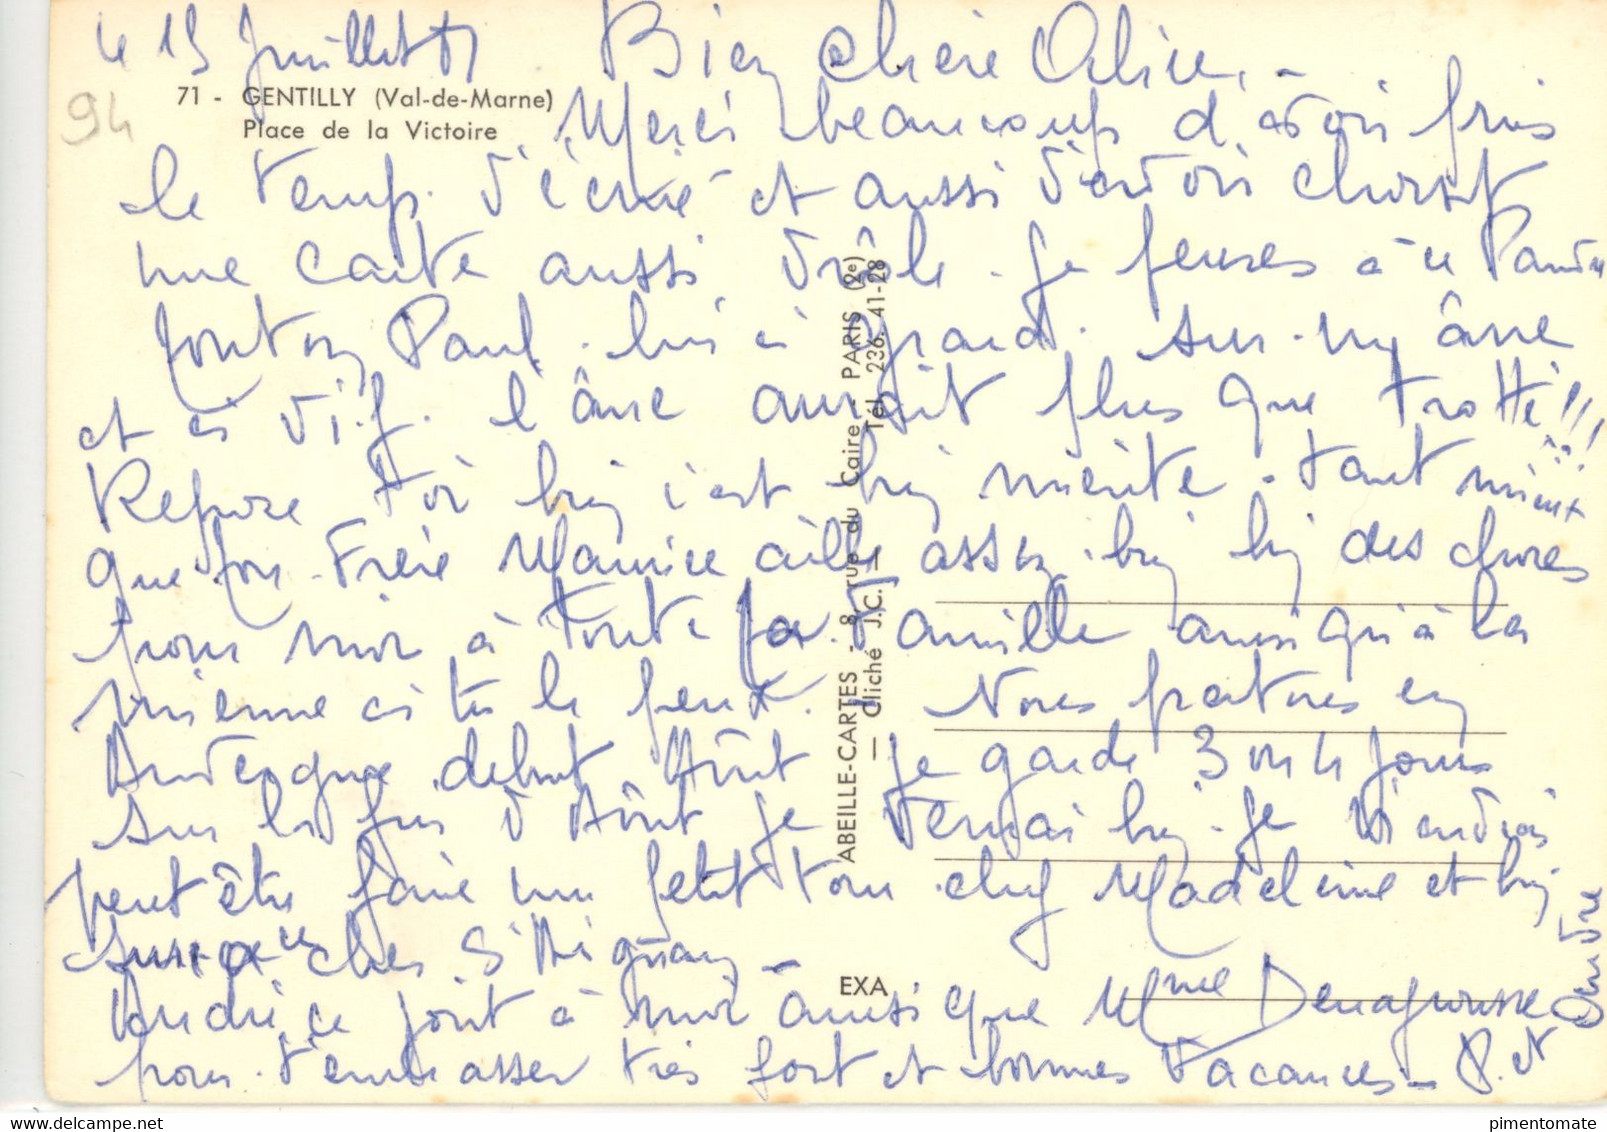 le 15 Juillet
Bien chère Alice,-
71 - GENTILLY (Val-de-Marne)
Place de la Victoire
94
Merci beaucoup d'avoir pris
le temps d'écrire et aussi d'avoir choisit
une carte aussi drôle. Je penses à ce
Paul lui si grand. sur un âne
et si vif. l'âne aurait plus que trotté!!!
Repose toi bien c'est bien mérité. tant mieux
que ton Frère Maurice aille assez bien bien des choses
pour moi à toute ta Famille ainsi qu'à la
mienne si tu le peux. Nous partons en
Auvergne debut Aôut je garde 3 ou 4 jours
sur la fin d'Aôut je
peut être faire un petit tour chez Madeleine et
chez S'Aignan_
André ce joint à moi ainsi que Mme
pour t'embrasser très fort et bonnes Vacances_
ABEILLE-CARTES - 8, rue du Caire - PARIS (2e)
— Cliché J.C. — Tél. 236. 41-28
EXA
pimentomate